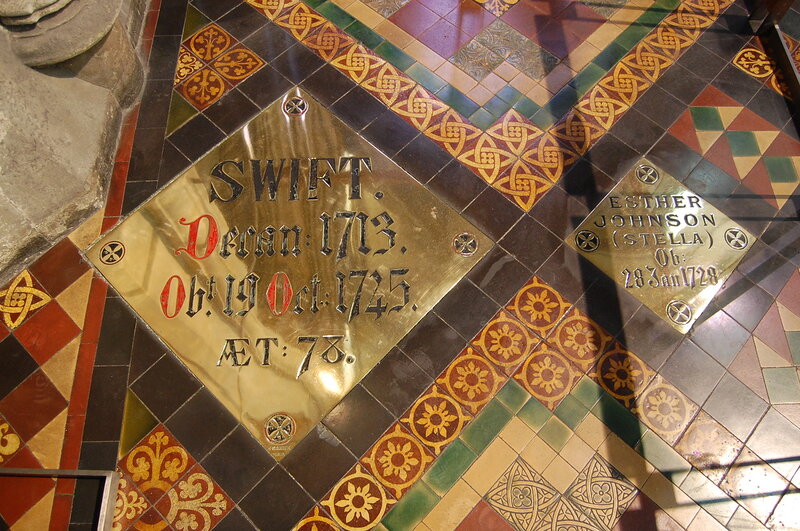 SWIFT.
Decan: 1713.
Obt. 19 Oct: 1745.
ÆT: 78.
ESTHER
JOHNSON
(STELLA)
Ob:
28 Jan 1728